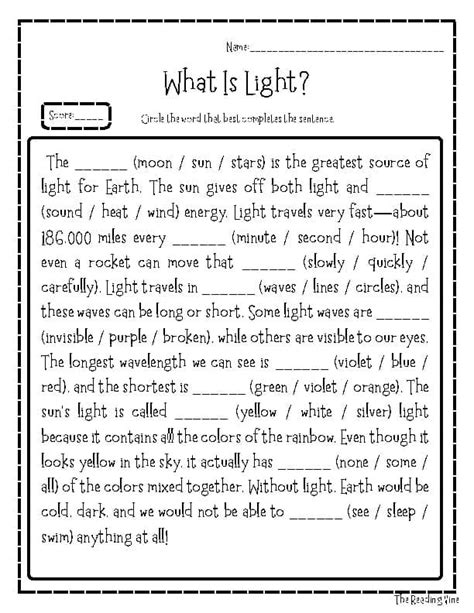 Name:________________________________
What Is Light?
Score:_____
Circle the word that best completes the sentence.
The ______ (moon / sun / stars) is the greatest source of
light for Earth. The sun gives off both light and ______
(sound / heat / wind) energy. Light travels very fast—about
186,000 miles every ______ (minute / second / hour)! Not
even a rocket can move that ______ (slowly / quickly /
carefully). Light travels in ______ (waves / lines / circles), and
these waves can be long or short. Some light waves are ______
(invisible / purple / broken), while others are visible to our eyes.
The longest wavelength we can see is ______ (violet / blue /
red), and the shortest is ______ (green / violet / orange). The
sun's light is called ______ (yellow / white / silver) light
because it contains all the colors of the rainbow. Even though it
looks yellow in the sky, it actually has ______ (none / some /
all) of the colors mixed together. Without light, Earth would be
cold, dark, and we would not be able to ______ (see / sleep /
swim) anything at all!
The Reading Vine